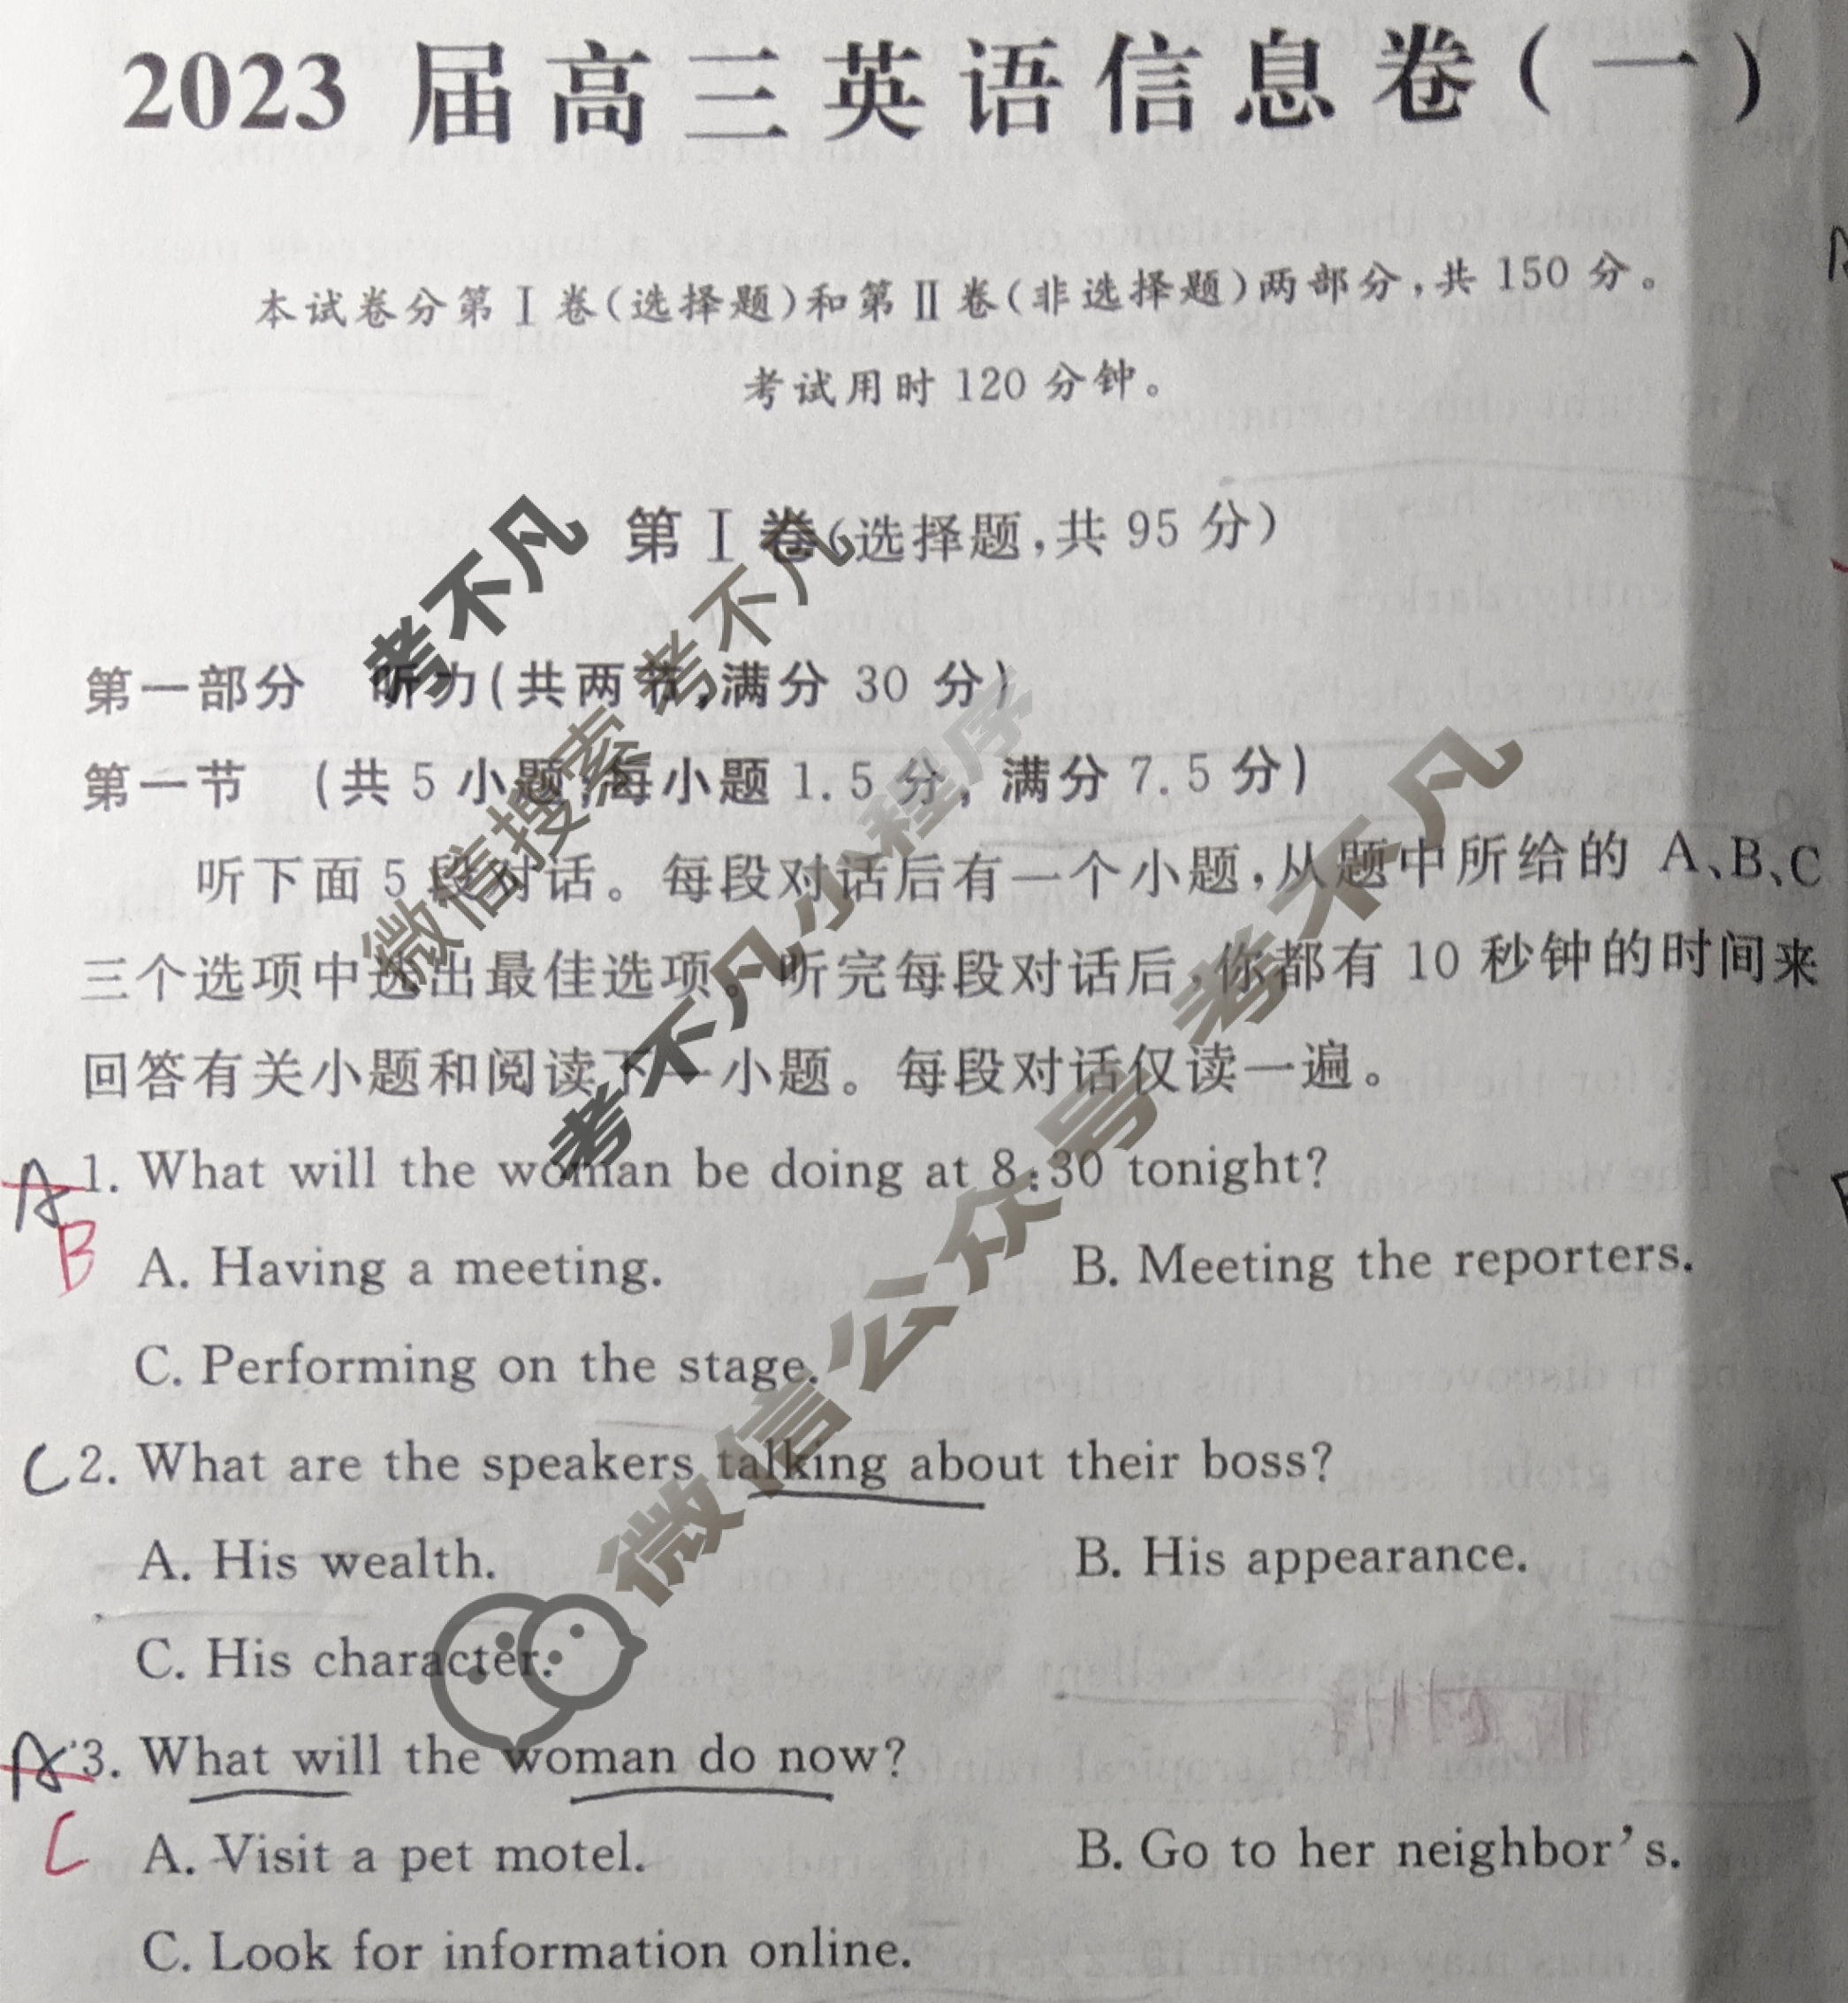 2023 届高三英语信息卷(一)
本试卷分第Ⅰ卷(选择题)和第Ⅱ卷(非选择题)两部分,共 150 分。
考试用时 120 分钟。
第Ⅰ卷(选择题,共 95 分)
第一部分 听力(共两节,满分 30 分)
第一节 (共 5 小题;每小题 1.5 分, 满分 7.5 分)
听下面 5 段对话。每段对话后有一个小题,从题中所给的 A、B、C
三个选项中选出最佳选项。听完每段对话后,你都有 10 秒钟的时间来
回答有关小题和阅读下一小题。每段对话仅读一遍。
A 1. What will the woman be doing at 8:30 tonight?
B A. Having a meeting. B. Meeting the reporters.
C. Performing on the stage.
C 2. What are the speakers talking about their boss?
A. His wealth. B. His appearance.
C. His character.
A 3. What will the woman do now?
C A. Visit a pet motel. B. Go to her neighbor's.
C. Look for information online.
考不凡
微信搜索 考不凡
考不凡小程序
微信公众号 考不凡